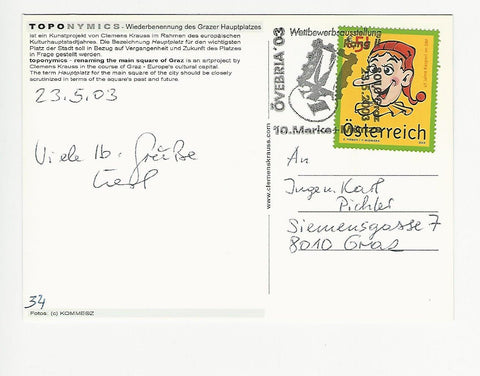 TOPONYMICS - Wiederbenennung des Grazer Hauptplatzes
ist ein Kunstprojekt von Clemens Krauss im Rahmen des europäischen
Kulturhauptstadtjahres. Die Bezeichnung Hauptplatz für den wichtigsten
Platz der Stadt soll in Bezug auf Vergangenheit und Zukunft des Platzes
in Frage gestellt werden.
toponymics - renaming the main square of Graz is an artproject by
Clemens Krauss in the course of Graz - Europe's cultural capital.
The term Hauptplatz for the main square of the city should be closely
scrutinized in terms of the square's past and future.
23.5.03
Viele lb. Grüße
34
Fotos: (c) KOMMESZ
www.clemenskrauss.com
ÖVEBRIA '03
Wettbewerbsausstellung
10. Marke + Münze
Österreich
An
Ingen. Karl
Pichler
Siemensgasse 7
8010 Graz